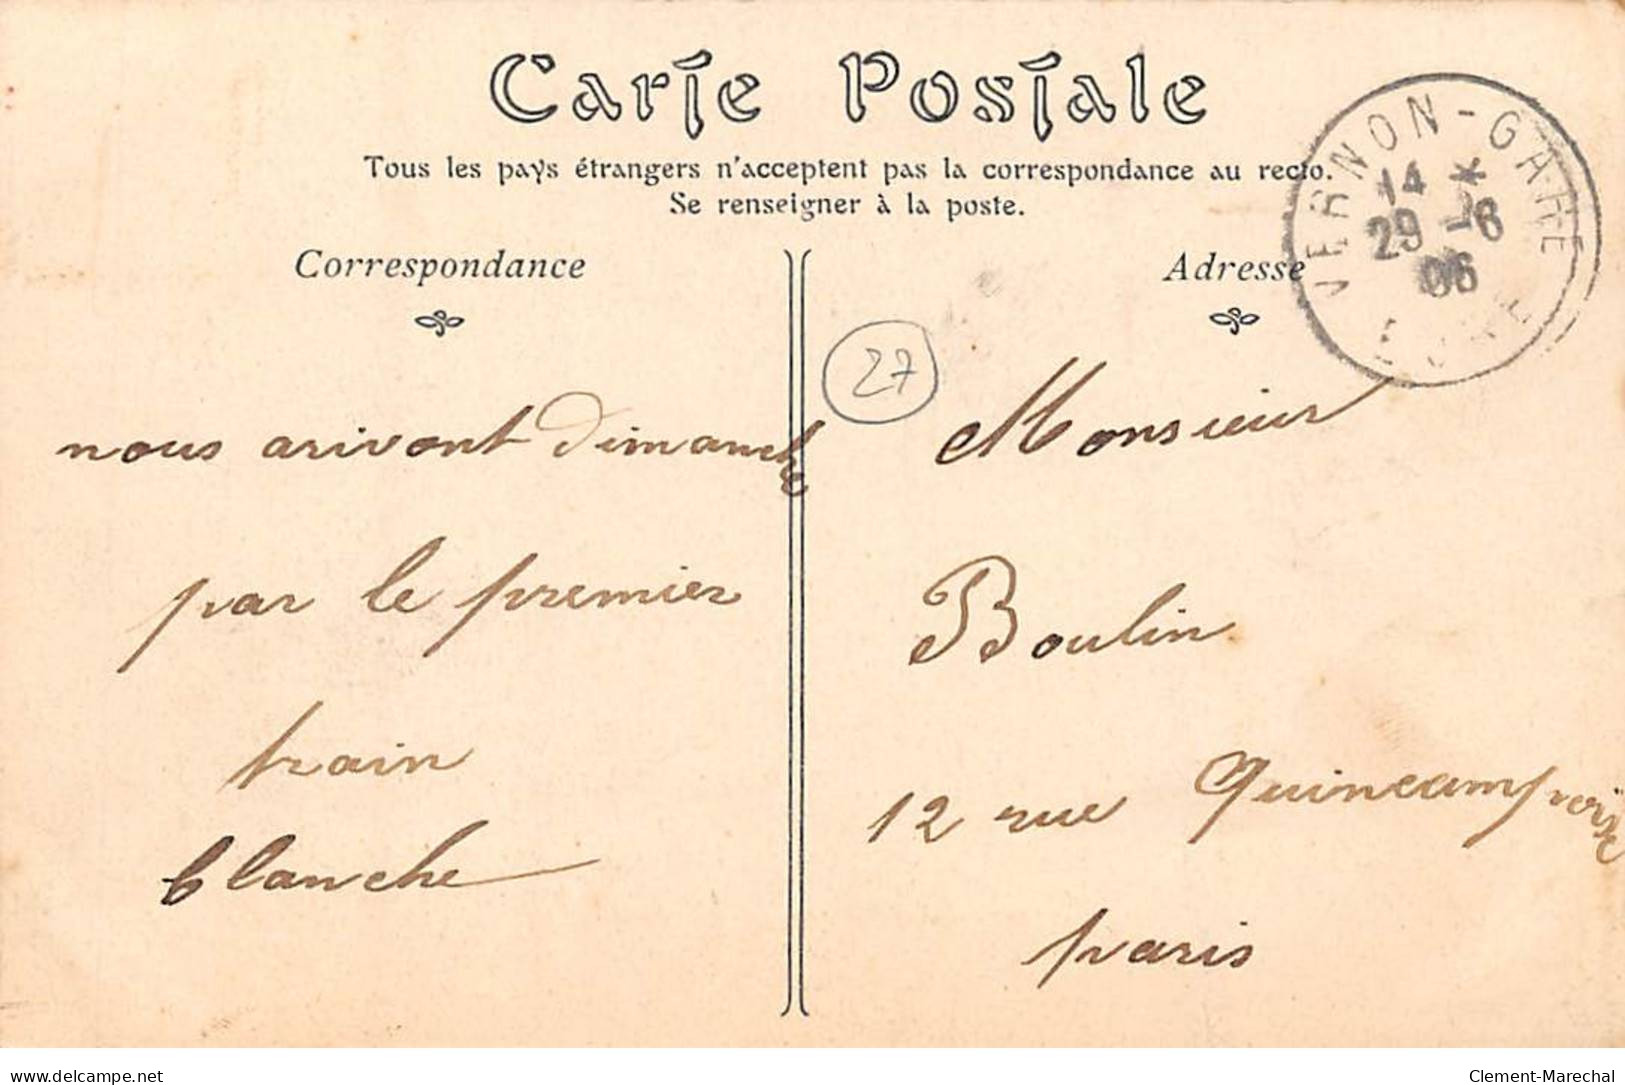 Carte Postale
Tous les pays étrangers n'acceptent pas la correspondance au recto.
Se renseigner à la poste.
Correspondance
Adresse
VERNON-GARE
14 *
29 -6
06
EURE
27
nous arivont Dimanche
par le premier
train
blanche
Monsieur
Boulin
12 rue Quincampoix
paris
delcampe.net
Clement-Marechal